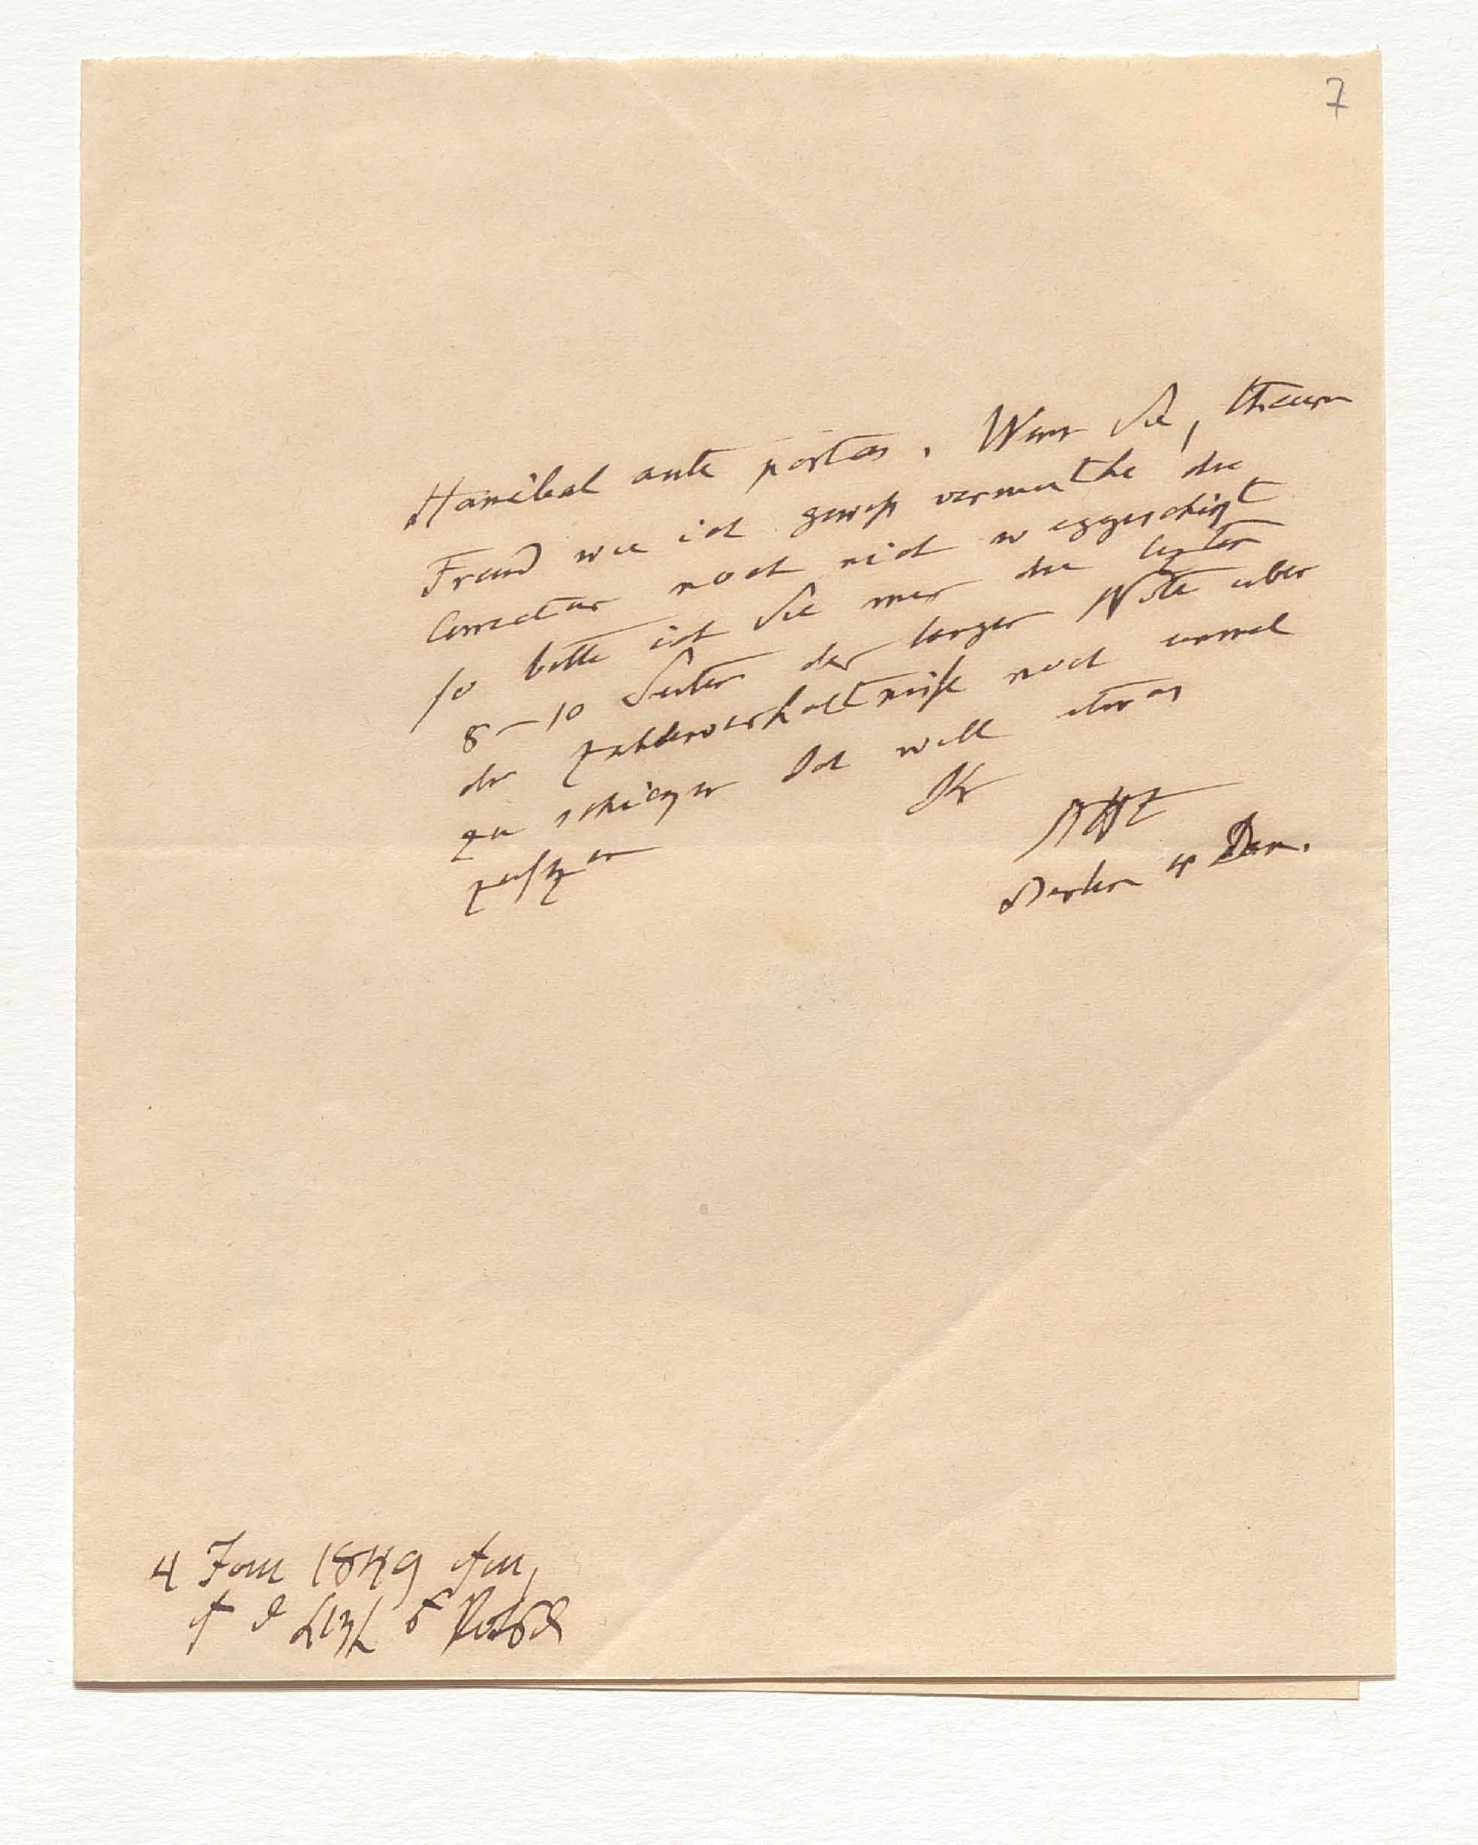 7
Hanibal ante portas. Wenn Sie, theurer
Freund wie ich gewiß vermuthe die
Correctur noch nicht weggeschigt
so bitte ich Sie mir die lezten
8–10 Seiten der langen Note über
die Zahlenverhältniße noch einmal
zu schicken Ich will etwas
zusezen Ihr
AHt
Berlin
4 Jan 1849